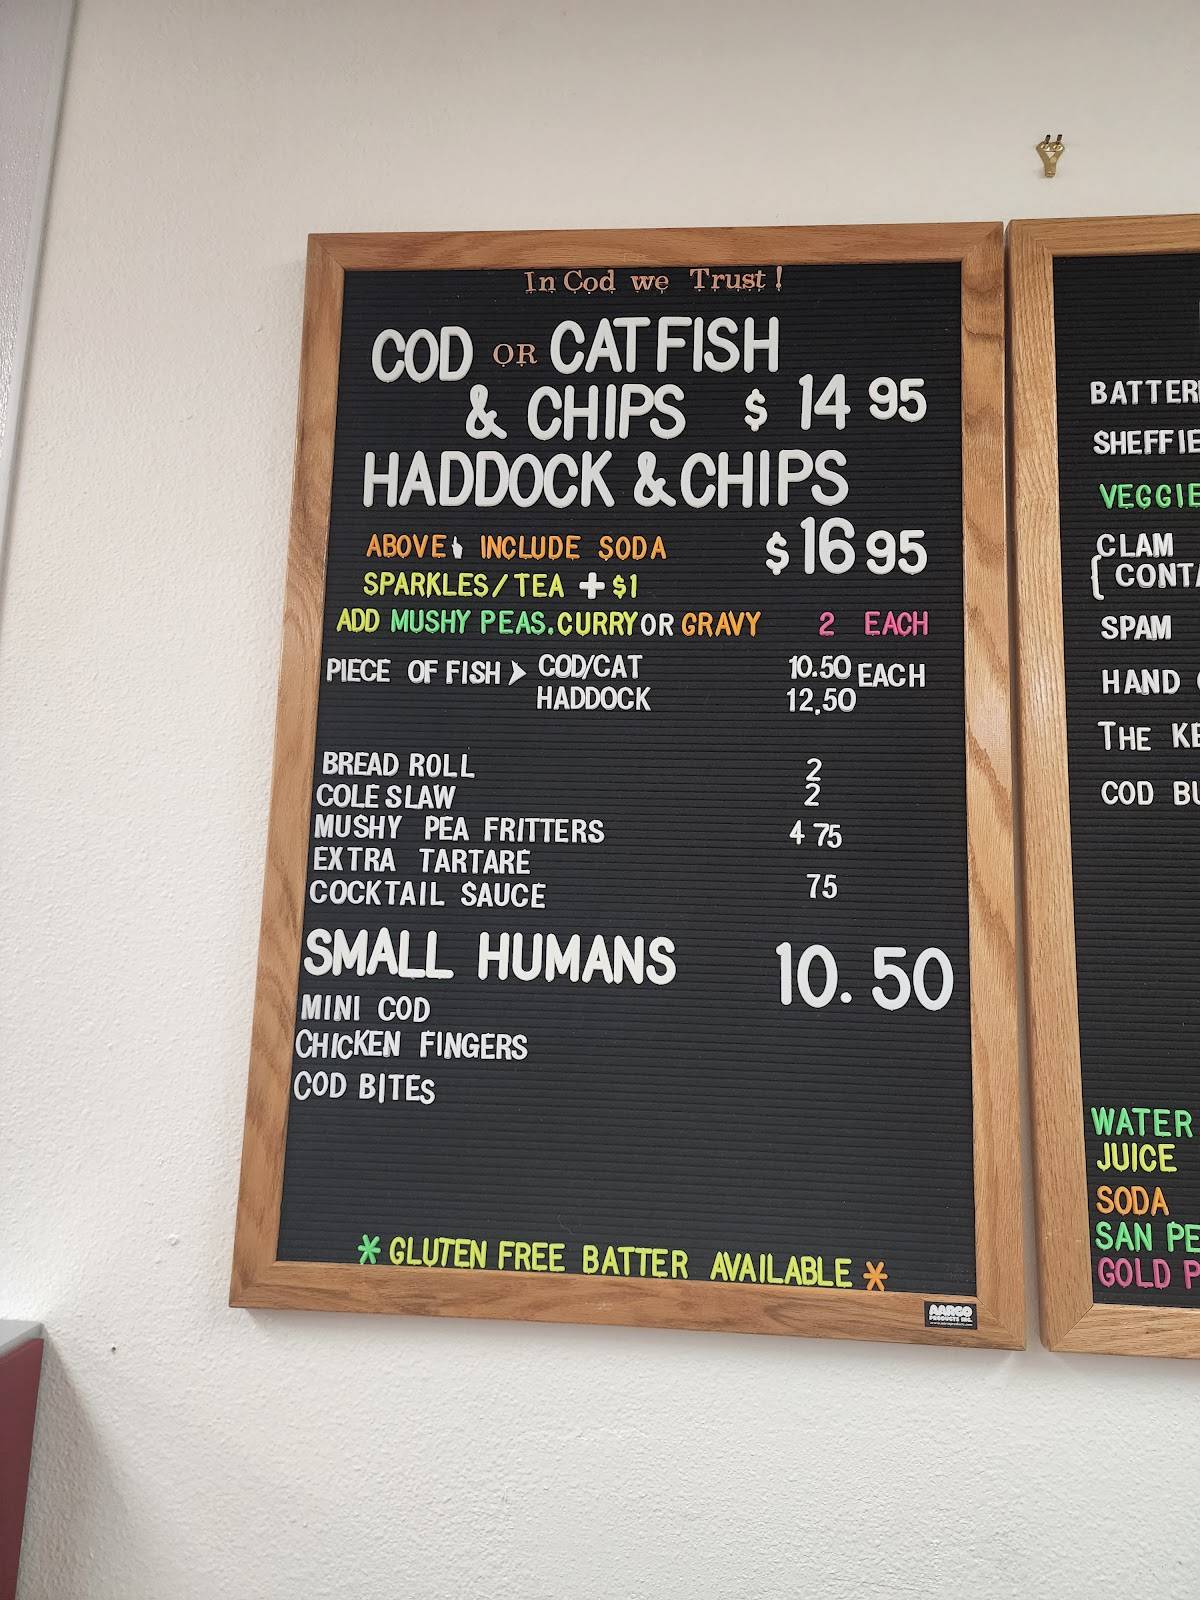 In Cod we Trust!
COD OR CATFISH
& CHIPS $ 14 95
HADDOCK & CHIPS
ABOVE INCLUDE SODA $ 16 95
SPARKLES/TEA + $1
ADD MUSHY PEAS. CURRY OR GRAVY 2 EACH
PIECE OF FISH > COD/CAT 10.50 EACH
HADDOCK 12.50
BREAD ROLL 2
COLE SLAW 2
MUSHY PEA FRITTERS 4 75
EXTRA TARTARE
COCKTAIL SAUCE 75
SMALL HUMANS 10.50
MINI COD
CHICKEN FINGERS
COD BITES
* GLUTEN FREE BATTER AVAILABLE *
AARCO
PRODUCTS INC.
BATTER
SHEFFIE
VEGGIE
CLAM
CONTA
SPAM
HAND
THE KE
COD BU
WATER
JUICE
SODA
SAN PE
GOLD P